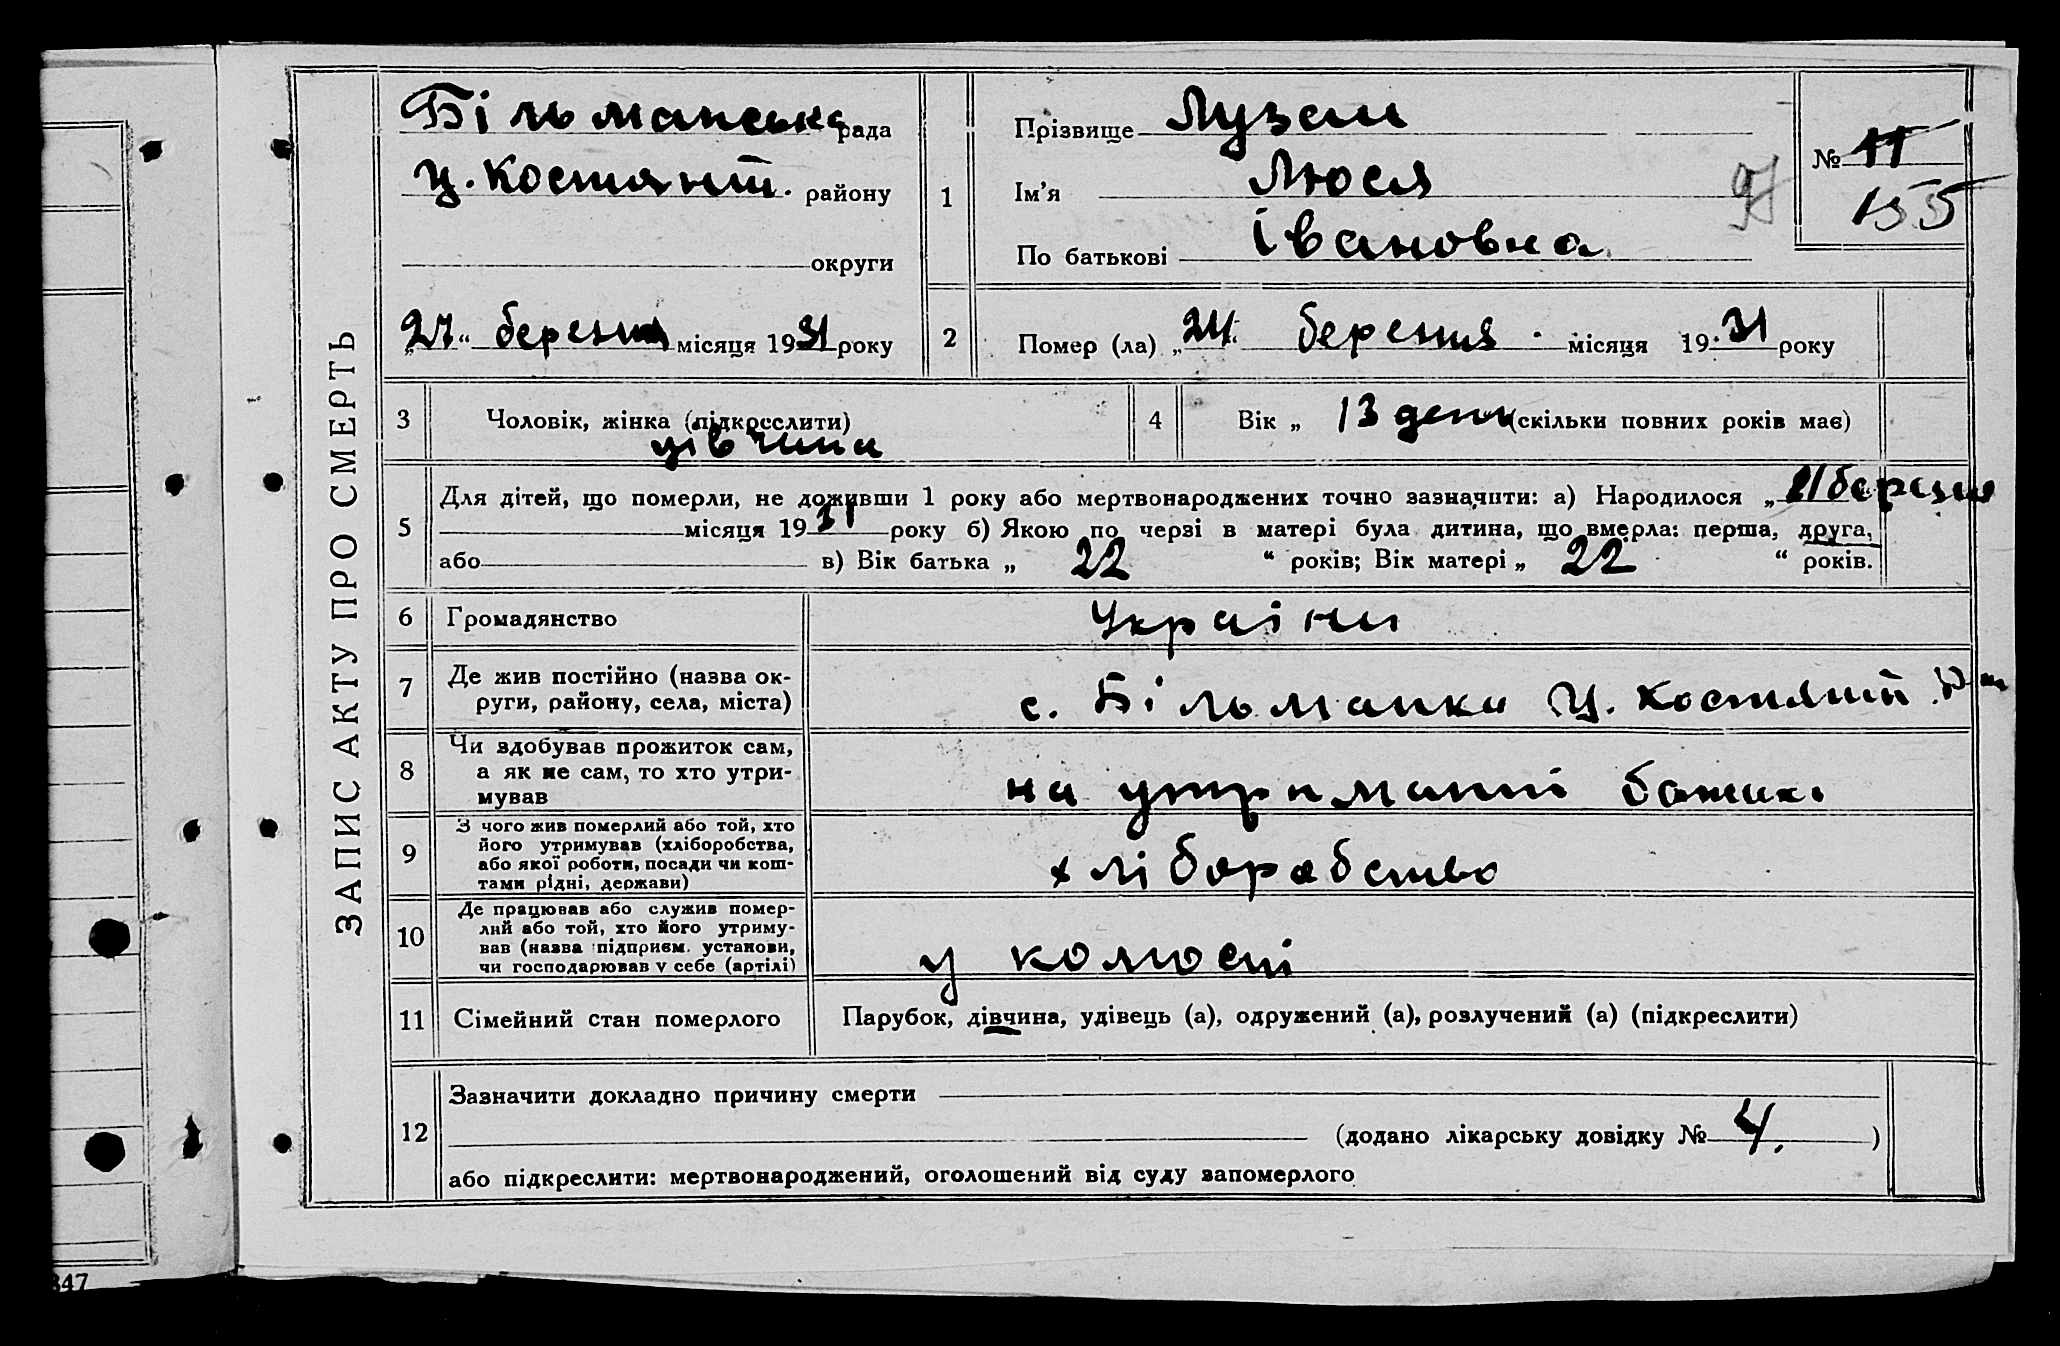 ЗАПИС АКТУ ПРО СМЕРТЬ
Більманська рада
Ц. Костянт. району
округи
„27“ березня місяця 1931 року
1
Прізвище Лузан
Ім'я Люся
По батькові Івановна
№ 11
155
97
2
Помер (ла) „24“ березня місяця 1931 року
3
Чоловік, жінка (підкреслити)
дівчина
4
Вік „ 13 день (скільки повних років має)
5
Для дітей, що померли, не доживши 1 року або мертвонароджених точно зазначити: а) Народилося „ 11 березня
місяця 1931 року б) Якою по черзі в матері була дитина, що вмерла: перша, друга,
або в) Вік батька „ 22 “ років; Вік матері „ 22 “ років.
6
Громадянство
України
7
Де жив постійно (назва ок-
руги, району, села, міста)
с. Більманка Ц. Костянт. Р
8
Чи здобував прожиток сам,
а як не сам, то хто утри-
мував
на утриманні батька
9
З чого жив померлий або той, хто
його утримував (хліборобства,
або якої роботи, посади чи кош-
тами рідні, держави)
хліборобство
10
Де працював або служив помер-
лий або той, хто його утриму-
вав (назва підприєм. установи,
чи господарював у себе (артілі)
у колгоспі
11
Сімейний стан померлого
Парубок, дівчина, удівець (а), одружений (а), розлучений (а) (підкреслити)
12
Зазначити докладно причину смерти
(додано лікарську довідку № 4. )
або підкреслити: мертвонароджений, оголошений від суду запомерлого
347